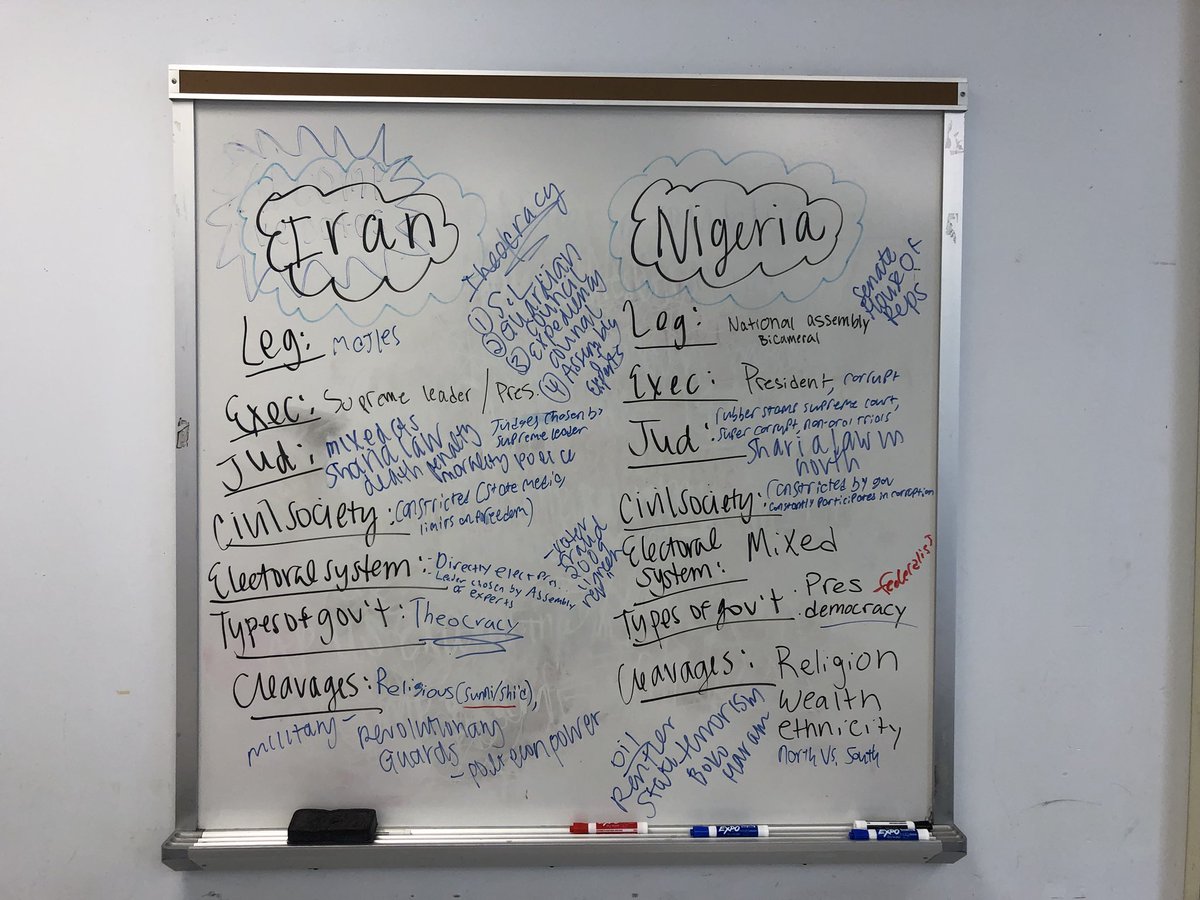 Iran
Theocracy
① S.L
② Guardian
council
③ Expediency
council
④ Assembly
of
experts
Leg: Majles
Exec: Supreme leader / Pres.
Jud:
sharia law
death penalty
morality police
Judges chosen by
supreme leader
Civil society: constricted (state media,
limits on freedom)
Electoral system: - Directly elect Pres.
- Leader chosen by Assembly
of experts
- voter
fraud
2009
Types of gov't: Theocracy
Cleavages: Religious (sunni/shi'a),
military - revolutionary
Guards
own power
Nigeria
Leg: National assembly
Bicameral
senate
House Of
Reps
Exec: President, corrupt
Jud: rubber stamp supreme court,
super corrupt, non-oral trials
sharia law in
north
Civil society: constricted by gov
constantly participates in corruption
Electoral Mixed
System:
Types of gov't: Pres
democracy
federalist
Cleavages: Religion
wealth
ethnicity
North Vs. South
Oil
Rentier
State
terrorism
Boko
Haram
EXPO
EXPO